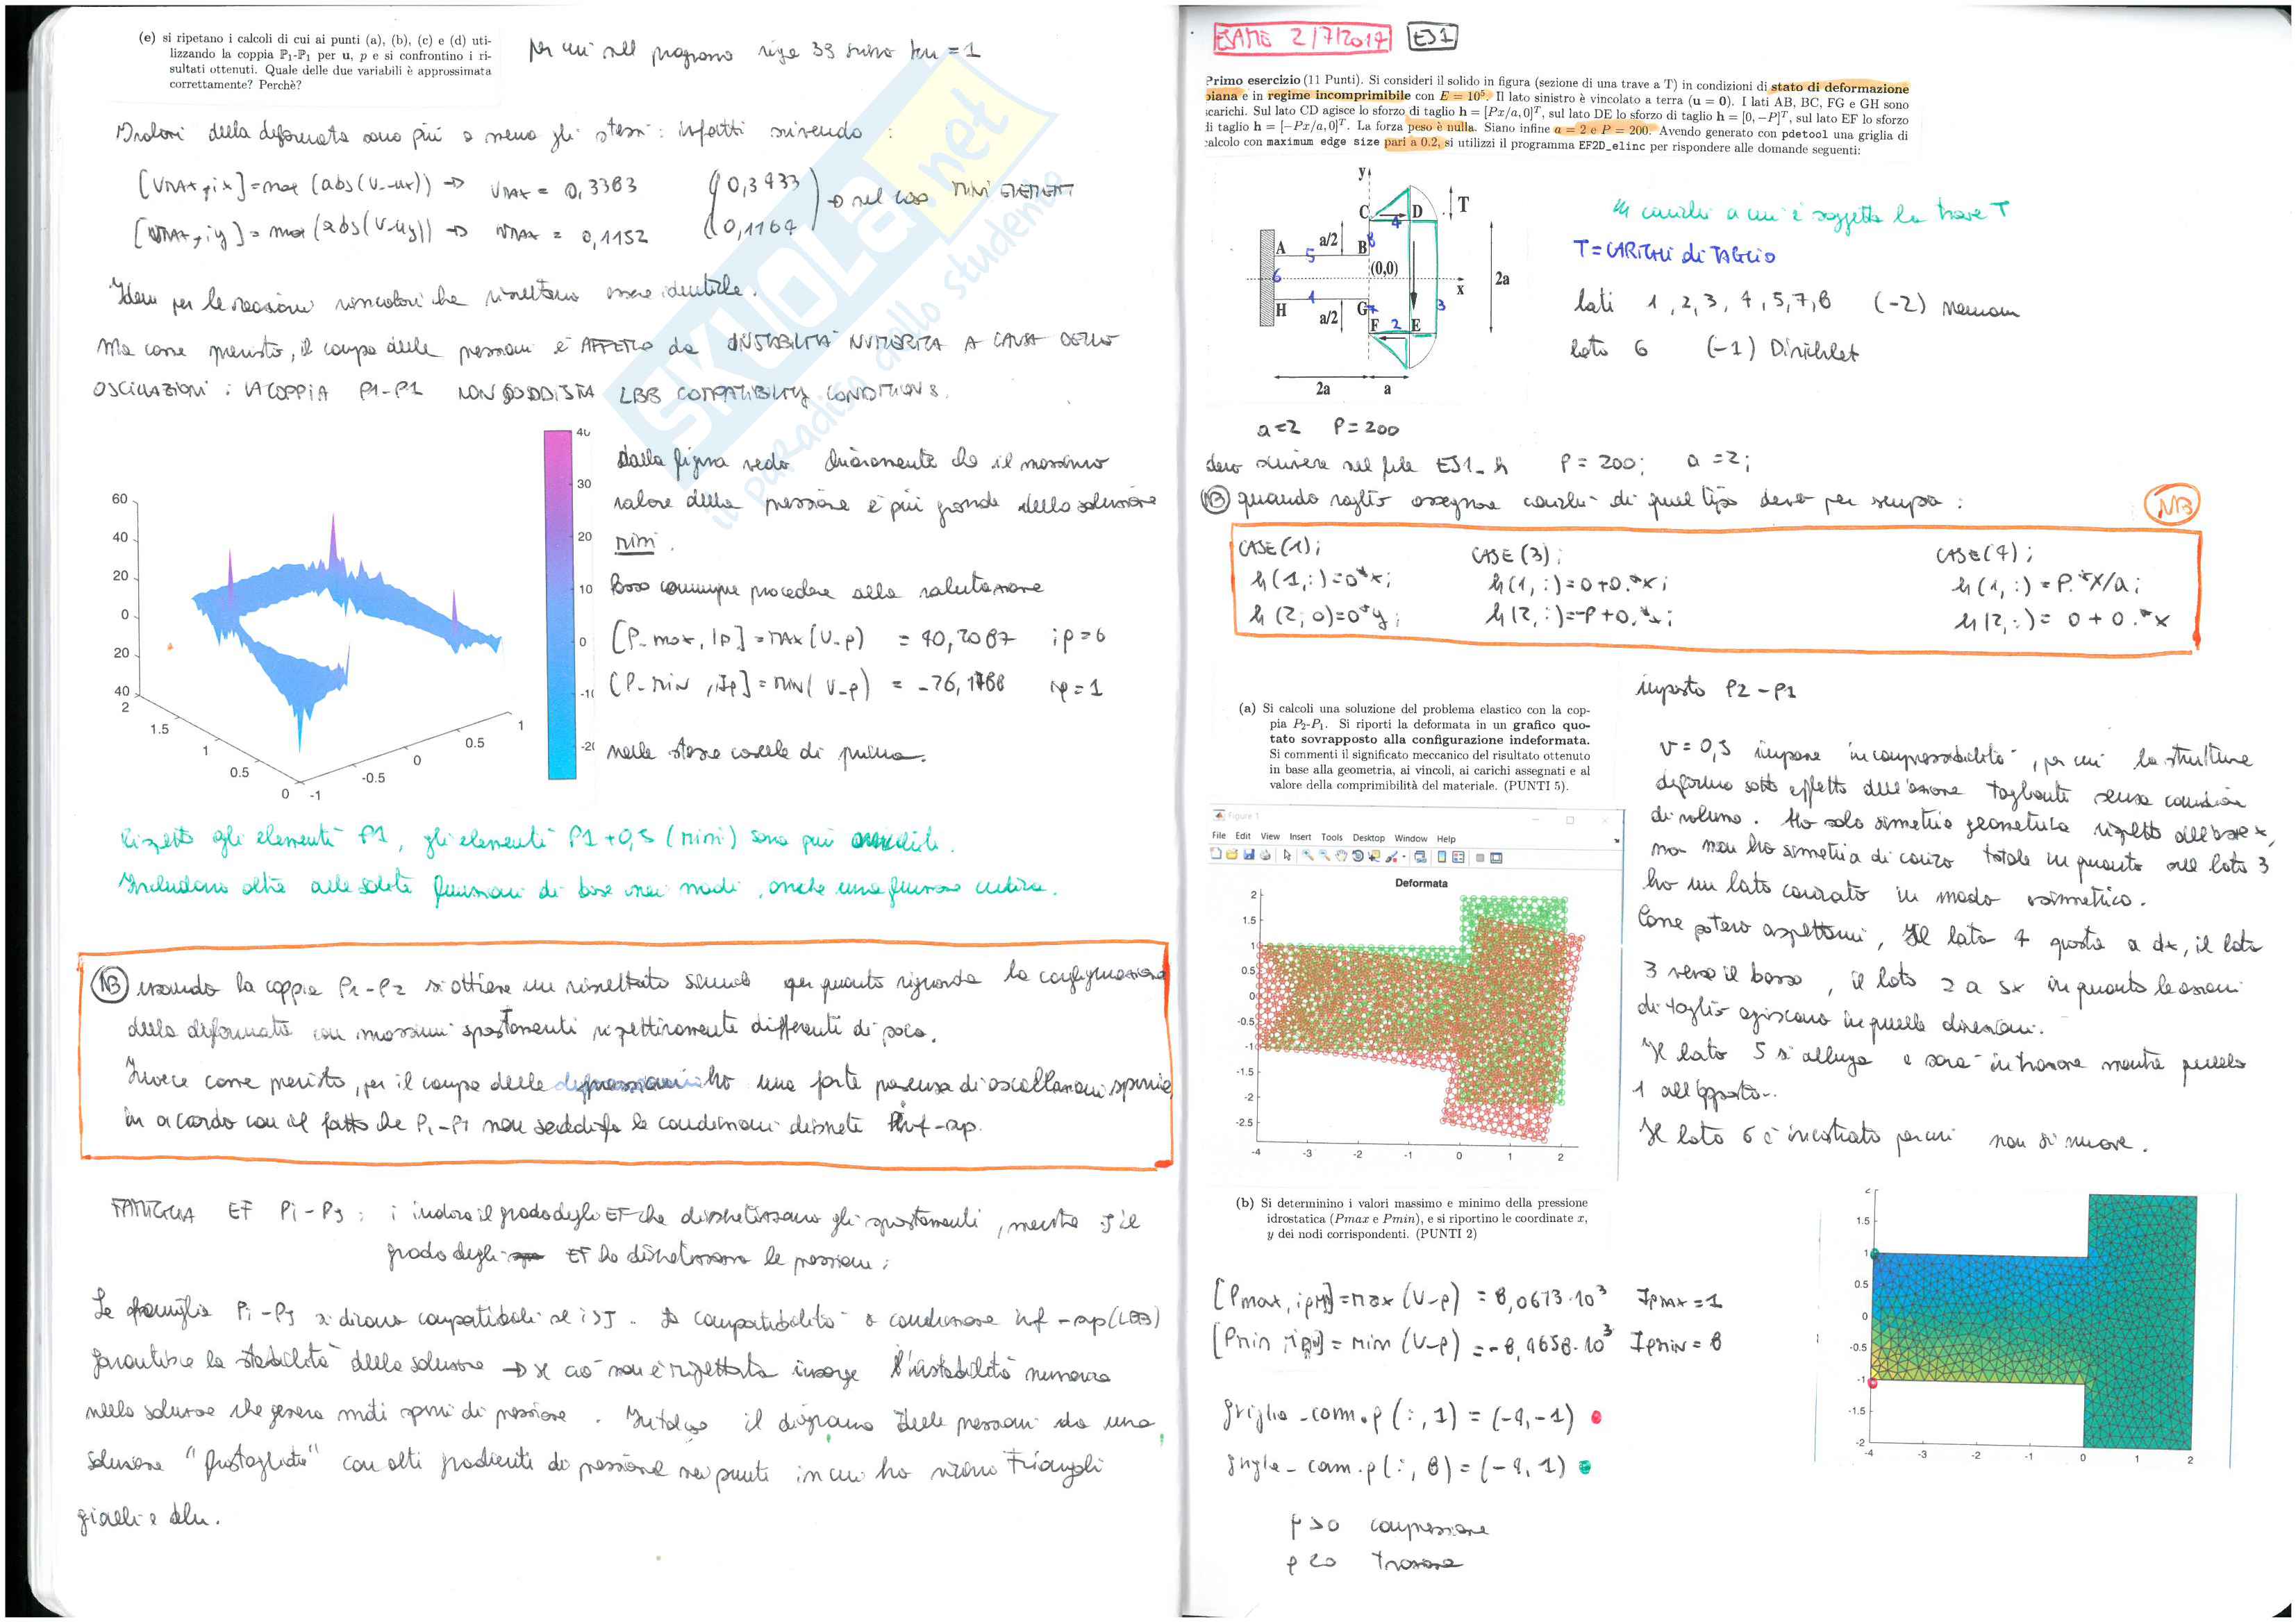 (e) si ripetano i calcoli di cui ai punti (a), (b), (c) e (d) uti-
lizzando la coppia ℙ₁-ℙ₁ per u, p e si confrontino i ri-
sultati ottenuti. Quale delle due variabili è approssimata
correttamente? Perchè?
per cui nel programma riga 33 ku = 1
I valori della deformata sono più o meno gli stessi: infatti scrivendo :
→ UMAX = 0,3383
→ = 0,1152
→ nel caso MINI ELEMENT
Idem per le reazioni vincolari che risultano essere identiche.
Ma come previsto, il campo delle pressioni è AFFETTO da INSTABILITÀ NUMERICA A CAUSA DELLE
OSCILLAZIONI : LA COPPIA P1-P1 NON SODDISFA LBB COMPATIBILITY CONDITIONS.
SKUOLA.net
il paradiso dello studente
dalla figura vedo chiaramente che il massimo
valore della pressione è più grande della soluzione
mini.
Posso comunque procedere alla valutazione
[P_max, Ip] = MAX(V_p) = 40,2087 ip=6
[P_min, Ip] = MIN(V_p) = -26,1788 ip=1
nelle stesse caselle di prima.
60
40
20
0
20
40
2
1.5
1
0.5
0
-1
-0.5
0
0.5
1
40
30
20
10
0
-10
-20
Rispetto agli elementi P1, gli elementi P1+0,5 (mini) sono più
Includono oltre alle solite funzioni di base nei nodi, anche una funzione cubica.
NB usando la coppia P1-P2 si ottiene un risultato simile per quanto riguarda la configurazione
della deformata con massimi spostamenti rispettivamente differenti di poco.
Invece come previsto, per il campo delle pressioni ho una forte presenza di oscillazioni spurie
in accordo con il fatto che P1-P1 non soddisfa le condizioni discrete inf-sup.
FAMIGLIA EF Pi-Pj : i indica il grado degli EF che discretizzano gli spostamenti, mentre j il
grado degli EF che discretizzano le pressioni;
Le famiglie Pi-Pj si dicono compatibili se i>j. La compatibilità o condizione inf-sup (LBB)
garantisce la stabilità della soluzione → se ciò non è rispettata insorge l'instabilità numerica
nella soluzione che genera modi spuri di pressione. In tal caso il diagramma delle pressioni da una
soluzione "frastagliata" con alti gradienti di pressione nei punti in cui ho vicino triangoli
gialli e blu.
ESAME 2/7/2017 ES1
Primo esercizio (11 Punti). Si consideri il solido in figura (sezione di una trave a T) in condizioni di stato di deformazione
piana e in regime incomprimibile con E = 10⁵. Il lato sinistro è vincolato a terra (u = 0). I lati AB, BC, FG e GH sono
scarichi. Sul lato CD agisce lo sforzo di taglio h = [Px/a, 0]ᵀ, sul lato DE lo sforzo di taglio h = [0, −P]ᵀ, sul lato EF lo sforzo
di taglio h = [−Px/a, 0]ᵀ. La forza peso è nulla. Siano infine a = 2 e P = 200. Avendo generato con pdetool una griglia di
calcolo con maximum edge size pari a 0.2, si utilizzi il programma EF2D_elinc per rispondere alle domande seguenti:
y
C 4 D T
A 5 a/2 B 8
6 (0,0) x 2a
H 1 a/2 G 7 3
F 2 E
2a a
carichi a cui è soggetta la trave T
T = CARICHI di TAGLIO
lati 1, 2, 3, 4, 5, 7, 8 (-2) Neumann
lato 6 (-1) Dirichlet
a=2 P=200
devo scrivere nel file ES1_h P = 200; a = 2;
NB quando voglio assegnare carichi di quel tipo devo per scrupolo :
NB
CASE(1); CASE(3); CASE(4);
h(1,:)=0*x; h(1,:)=0+0.*x; h(1,:)=P.*x/a;
h(2,0)=0*y; h(2,:)=-P+0.*x; h(2,:)= 0+0.*x
(a) Si calcoli una soluzione del problema elastico con la cop-
pia P₂-P₁. Si riporti la deformata in un grafico quo-
tato sovrapposto alla configurazione indeformata.
Si commenti il significato meccanico del risultato ottenuto
in base alla geometria, ai vincoli, ai carichi assegnati e al
valore della comprimibilità del materiale. (PUNTI 5).
imposto P2-P1
ν = 0,5 impone incompressibilità, per cui la struttura
deforma sotto effetto dell'azione tagliante senza
di volume. Ho solo simmetria geometrica rispetto all'asse x,
ma non ho simmetria di carico totale in quanto sul lato 3
ho un lato caricato in modo asimmetrico.
Come potevo aspettarmi, il lato 4 sposta a dx, il lato
3 verso il basso, il lato 2 a sx in quanto le azioni
di taglio agiscono in quelle direzioni.
Il lato 5 si allunga e sarà in trazione mentre quello
1 all'opposto.
Il lato 6 è incastrato per cui non si muove.
Figure 1
File Edit View Insert Tools Desktop Window Help
Deformata
2
1.5
1
0.5
0
-0.5
-1
-1.5
-2
-2.5
-4 -3 -2 -1 0 1 2
(b) Si determinino i valori massimo e minimo della pressione
idrostatica (Pmax e Pmin), e si riportino le coordinate x,
y dei nodi corrispondenti. (PUNTI 2)
= max(V_p) = 8,0673·10³ Ipmax=1
= min(V_p) = -8,4658·10³ Ipmin=8
griglia_com.p(:,1) = (-4,-1)
griglia_com.p(:,8) = (-4,1)
p>0 compressione
p<0 trazione
2
1.5
1
0.5
0
-0.5
-1
-1.5
-2
-4 -3 -2 -1 0 1 2